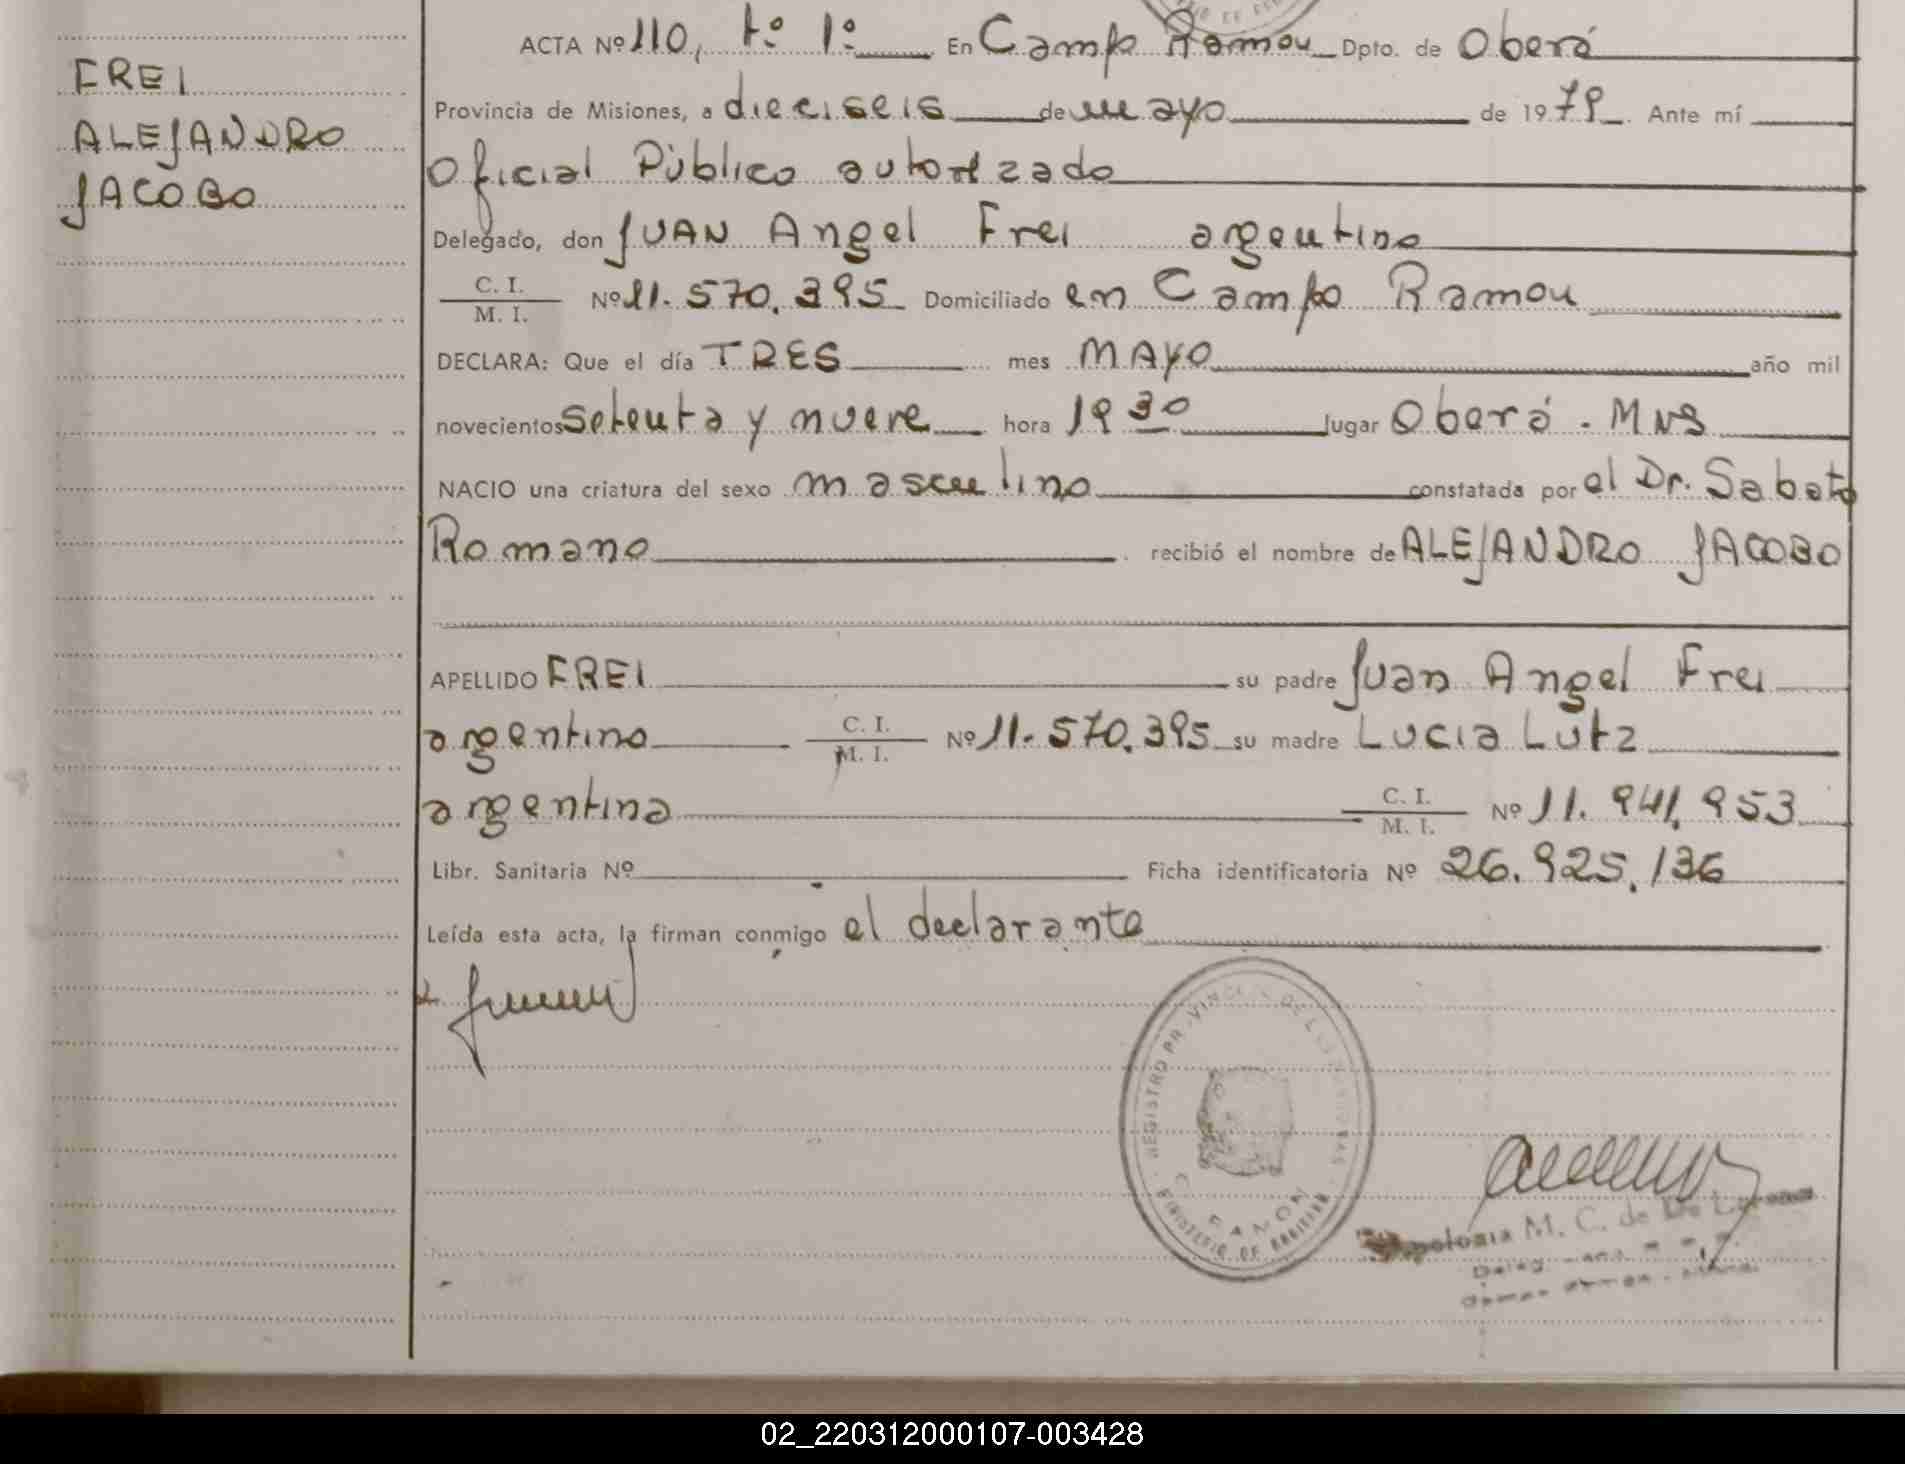 FREI
ALEJANDRO
JACOBO
ACTA Nº 110, tº 1º En Campo Ramon Dpto. de Oberá
Provincia de Misiones, a dieciseis de mayo de 1979. Ante mí
Oficial Público autorizado
Delegado, don JUAN Angel Frei argentino
C. I.
M. I.
Nº 11.570.395 Domiciliado en Campo Ramon
DECLARA: Que el día TRES mes MAYO año mil
novecientos setenta y nueve hora 19 30 lugar Oberá . Mns
NACIO una criatura del sexo masculino constatada por el Dr. Sabato
Romano recibió el nombre de ALEJANDRO JACOBO
APELLIDO FREI su padre Juan Angel Frei
argentino C. I. Nº 11.570.395 su madre Lucia Lutz
M. I.
argentina C. I. Nº 11.941.953
M. I.
Libr. Sanitaria Nº Ficha identificatoria Nº 26.925.136
Leída esta acta, la firman conmigo el declarante
REGISTRO PROVINCIAL DE LAS PERSONAS
C. RAMON
MINISTERIO DE GOBIERNO
M. C. de De
02_220312000107-003428